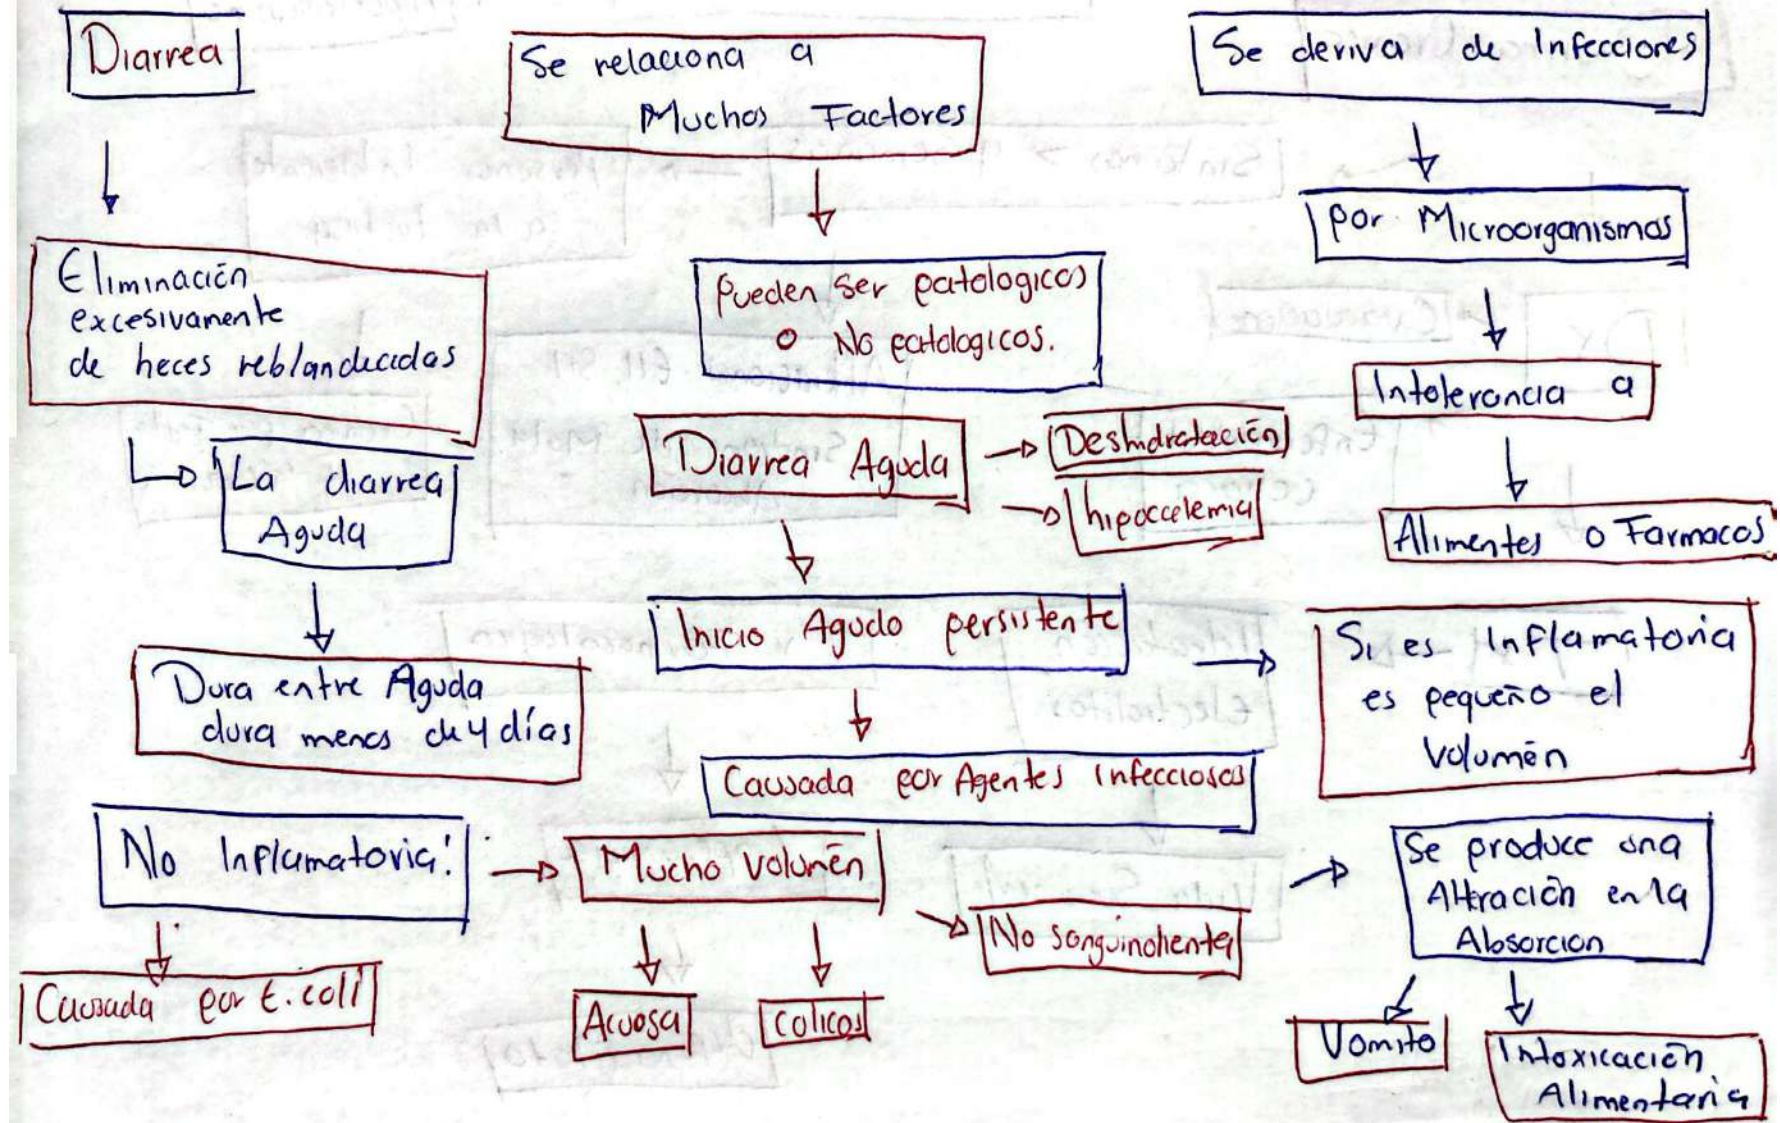 Diarrea
Eliminación
excesivamente
de heces reblandecidas
La diarrea
Aguda
Dura entre Aguda
dura menos de 4 días
No Inflamatoria!
Causada por E. coli
Se relaciona a
Muchos Factores
Pueden ser patologicos
o No patologicos.
Diarrea Aguda
Deshidratación
hipoccelemia
Inicio Agudo persistente
Causada por Agentes infecciosos
Mucho Volumén
Acuosa
colicos
No sanguinolienta
Se deriva de Infecciones
por Microorganismos
Intolerancia a
Alimentos o Farmacos
Si es Inflamatoria
es pequeño el
Volumén
Se produce una
Altración en la
Absorcion
Vomito
Intoxicación
Alimentaria